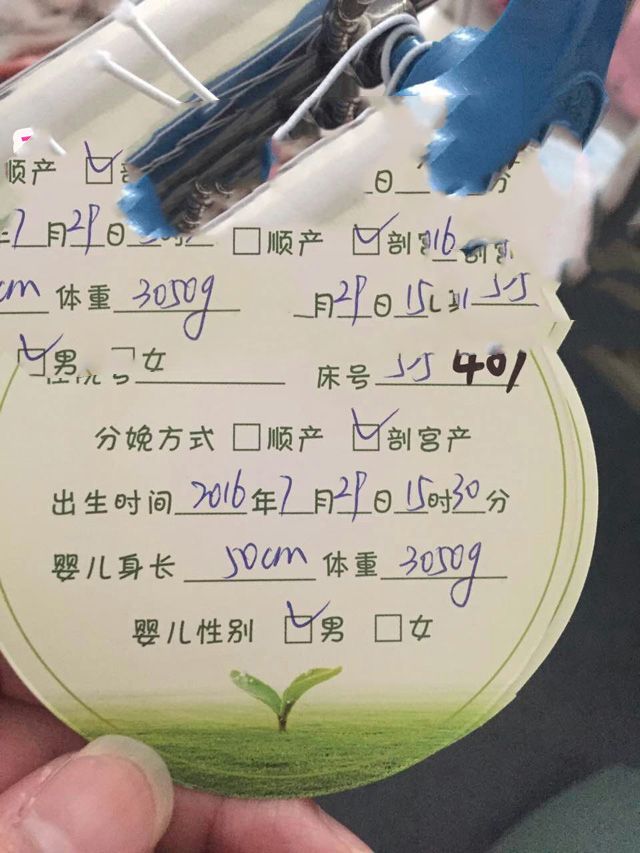 顺产 ☑ 日 分
7月29日 □顺产 ☑剖宫 16
cm 体重 3050g 月29日15
☑男 □女
床号 401
分娩方式 □顺产 ☑剖宫产
出生时间 2016年7月29日15时30分
婴儿身长 50cm 体重 3050g
婴儿性别 ☑男 □女